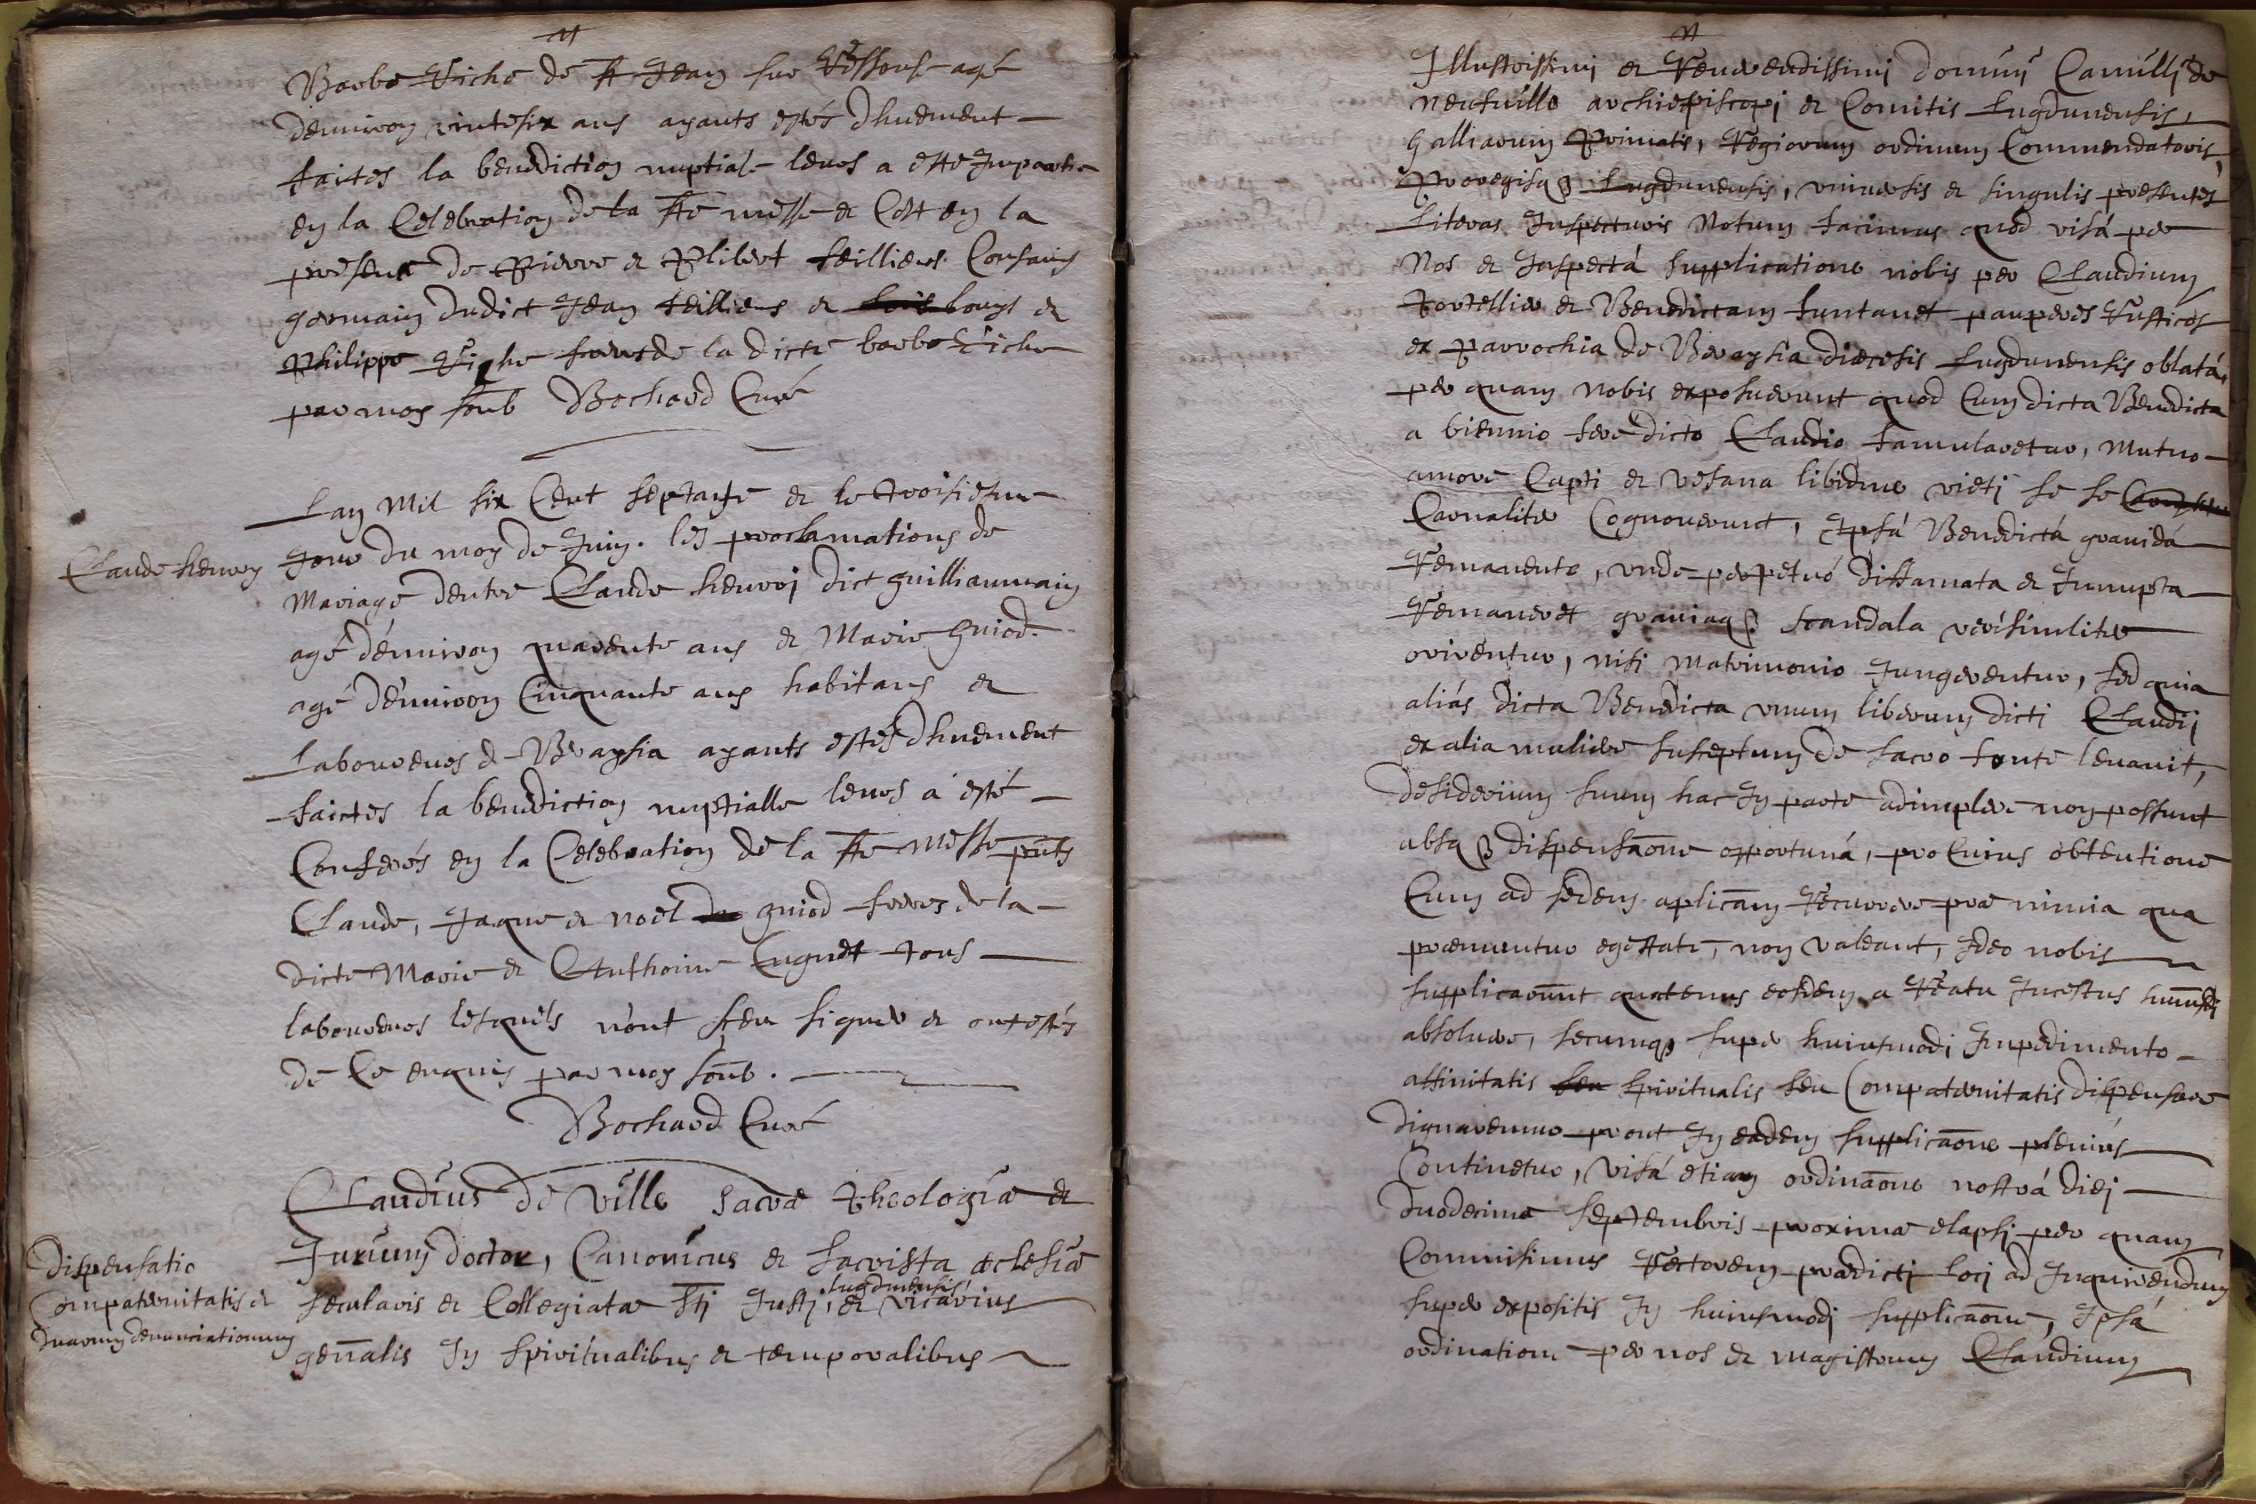 Barbe Riche de St Jean sur Ressouse agé
denuiron vintesix ans ayants estés dhuement
faictes la benediction nuptiale leurs a esté Impartie
en la Celebration de la Ste messe et Cest en la
presence de Pierre et Plibert feilliens Consains
germain dudict Jean feilliens et Louys et
Philippe Riche freres de la dicte barbe Riche
par moy soub Bochard Curé
Lan Mil six Cent septante et le troisiesme
Jour du moy de Juin. les proclamations de
Claude henroy
Mariage dentre Claude henroj dict guilliaumain
agé dénuiron quarente ans et Marie guiod.
agé dénuiron Cinquante ans habitans et
Laboureurs de Beraysia ayants estés dhuement
faictes la benediction nuptialle leurs á esté
Conferés en la Celebration de la Ste Messe pnts
Claude, Jaque et noel guiod freres de la
dicte Marie et Anthoine Cuguet tous
laboureurs lesquels n'ont sceu signer et ont estés
de Ce enquis par moy soub.
Bochard Curé
Claudius de Ville sacræ theologiæ et
Jurium doctor, Canonicus et Sacrista ecclesiæ
dispensatio
Compaternitatis et
duarum denunciationum
secularis et Collegiatæ Sti Justj, lugdunensis et vicarius
genalis In spiritualibus et temporalibus
Illustrissimi et Reuerendissimi dominj Camilli de
neufuille archiepiscopi et Comitis Lugdunensis,
Galliarum Primatis, Regiorum ordinum Commendatoris,
Proregisq3 Lugdunensis, vniuersis et singulis presentes
Literas Inspecturis Notum facimus quod visá per
Nos et Inspectá supplicatione nobis per Claudium
tortellier et Benedictam funtanet pauperes Rusticos
ex parrochia de Beraysia diœcesis Lugdunensis oblatá,
per quam nobis exposuerunt quod Cum dicta Benedicta
a biennio fere dicto Claudio famularetur, Mutuo
amore Capti et vesana libidine victj se se
Carnaliter Cognouerunt, Ipsá Benedictá grauidá
Remanente, vnde perpetuó diffamata et Innupta
Remaneret grauiaq3 scandala verisimiliter
orirentur, nisi matrimonio Jungerentur, sed quia
aliás dicta Benedicta vnum liberum dicti Claudij
ex alia muliere susceptum de sacro fonte leuauit,
desiderium suum hac In parte adimplere non possunt
absq3 dispensaone opportuná, pro Cuius obtentione
Cum ad sedem aplicam Recurrere præ nimia qua
præmuntur egestate, non valeant, Ideo nobis
supplicarunt quatenus eosdem a Reatu Incestus humsdj
absoluere, secumq3 super huiusmodi Impedimento
affinitatis spiritualis seu Compaternitatis dispensare
dignaremur prout In eadem supplicaone pleniús
Continetur, visá etiam ordinaone nostrá diej
duodecimæ septembris proximæ elapsi per quam
Commisimus Rectorem prædicti locj ad Inquirendum
super expositis In huiusmodj supplicaone, Ipsá
ordinatione per nos et magistrum Claudium